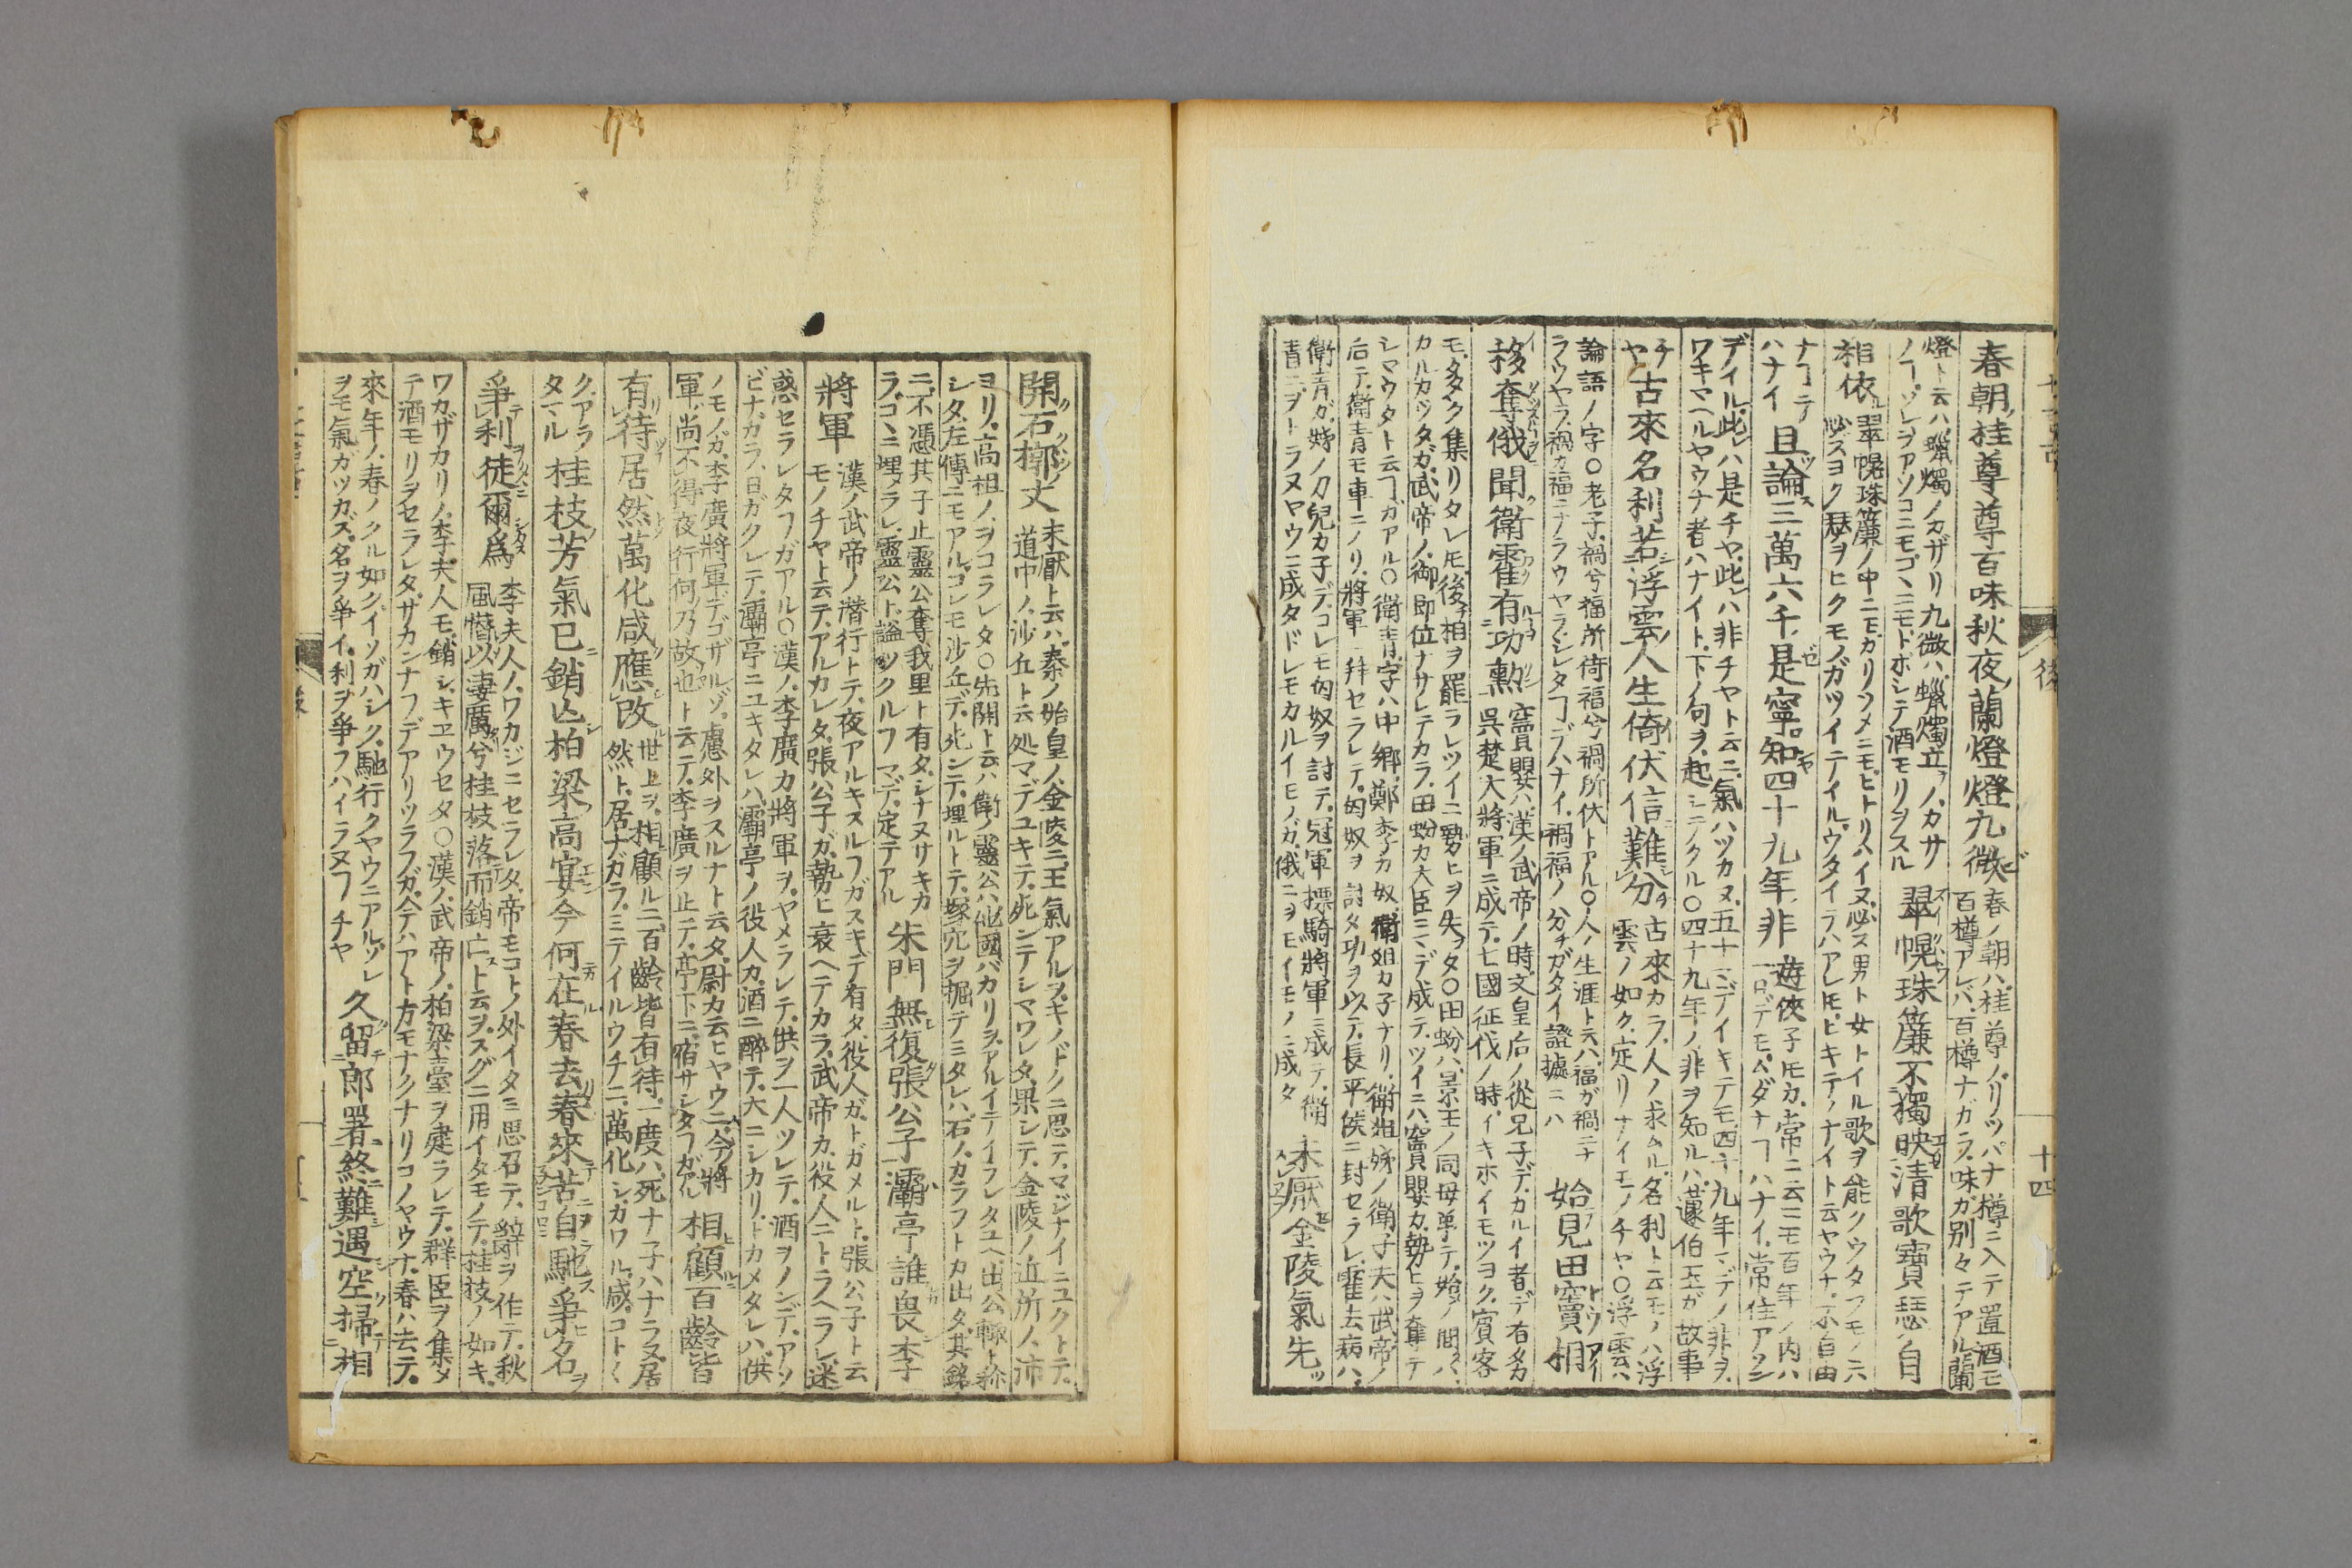 春朝桂尊尊百味秋夜蘭燈燈九微
春ノ朝ハ桂尊ノリツパナ樽ニ入テ置酒モ
百樽アレバ百樽ナガラ味ガ別々テアル蘭
燈ト云ハ蠟燭ノカザリ九微ハ蠟燭立
翠幌珠簾不獨映清歌寶瑟自
相依
翠幌珠簾ノ中ニモカリソメニモヒトリハイヌ必ス男ト女トイル歌ヲ能クウタフモノニハ
必スヨク瑟ヲヒクモノガツイテイル
且論三萬六千是寧知四十九年非
遊俠子モカ常ニ云ニモ百年ノ内ハ
デイル此ハ是チヤ此ハ非チヤト云ニ氣ハツカヌ五十ニデイキテモ四十九年マデノ非ヲ
ワキマヘルヤウナ者ハナイト下ノ句ヲ起シニノクル〇四十九年ノ非ヲ知ルハ蘧伯玉ガ故事
チヤ
古來名利若浮雲人生倚伏信難分
古來カラ人ノ求ムル名利ト云モノハ浮
雲ノ如ク定リナイモノチヤ〇浮雲ハ
論語ノ字〇老子禍兮福所倚福兮禍所伏トアル〇人ノ生涯ト云ハ福ガ禍ニナ
ラウヤラ禍カ福ニナラウヤラシレタコデハナイ禍福ノ分チガタイ證據ニハ
始見田竇相
移奪俄聞衞霍有功勳
竇嬰ハ漢ノ武帝ノ時文皇后ノ從兄子デカルイ者デ有タカ
呉楚大將軍ニ成テ七國征伐ノ時イキホイモツヨク賓客
モ多ク集リタレモ後チ相ヲ罷ラレツイニ勢ヒヲ失ヲタ〇田蚡ハ景王ノ同母弟テ始ノ間ハ
カルカツタガ武帝ノ御即位ナサレテカラ田蚡カ大臣ニマデ成テツイニハ竇嬰カ勢ヒヲ奪テ
シマウタト云コガアル〇衞青字ハ仲卿鄭季カ奴衞媼カ子ナリ衞媼姊ノ衞子夫ハ武帝ノ
后テ衞青モ車ニノリ將軍ニ拜セラレテ匈奴ヲ討タ功ヲ以テ長平侯ニ封セラレ霍去病ハ
衞青ガ姊ノ兒カ子デコレモ匈奴ヲ討テ冠軍驃騎將軍ニ成テ衞
青ニヲトラヌヤウニ成タドレモカルイモノガ俄ニヲモイモノニ成タ
未厭金陵氣先
後 十四
開石槨文
未厭ト云ハ秦ノ始皇ノ金陵ニ王氣アルヲキノドクニ思テマジナイニユクトテ
道中ノ沙丘ト云処マデユキテ死ンテシマワレタ果シテ金陵ノ近所ノ沛
ヨリ高祖ノヲコラレタ〇先開ト云ハ衞ノ靈公ハ他國バカリヲアルイテイラレタユヘ出公輒ト称
シタ左傳ニモアルコレモ沙丘デ死ンテ埋ルトテ塚穴ヲ掘テミタレハ石ノカラフトカ出タ其銘
ニ不憑其子止靈公奪我里ト有タシナヌサキカ
ラコヽニ埋ラレ靈公ト謚ヲツクルコマデ定テアル
朱門無復張公子灞亭誰畏李
將軍
漢ノ武帝ノ潛行トテ夜アルキスルコガスキデ有タ役人ガトガメルト張公子ト云
モノチヤト云テアルカレタ張公子ガ勢ヒ衰ヘテカラ武帝カ役人ニトラヘラレ迷
惑セラレタコガアル〇漢ノ李廣カ將軍ヲヤメラレテ供ヲ一人ツレテ酒ヲノンデアソ
ビナガラ日ガクレテ灞亭ニユキタレハ灞亭ノ役人カ酒ニ醉テ大ニシカリトカメタレハ供
ノモノガ李廣將軍テゴザルゾ慮外ヲスルナト云タ尉カ云ヒヤウニ今將
軍尚不得夜行何乃故也ト云テ李廣ヲ止テ亭下ニ宿サシタコガアル
相顧百齡皆
有待居然萬化咸應改
世上ヲ相顧ルニ百齡皆有待一度ハ死ナ子ハナラヌ居
然ト居ナガラミテイルウチニ萬化シガワル咸コトく
クアラ
タマル
桂枝芳氣已銷亡柏梁高宴今何在春去春來苦自馳爭名
爭利徒爾爲
李夫人ノワカジニセラレタ帝モコトノ外イタミ思召テ辭ヲ作テ秋
風憯以淒厲兮桂枝落而銷亡スト云ヲスグニ用イタモノテ桂枝ノ如キ
ワカザカリノ李夫人モ銷シキエウセタ〇漢ノ武帝ノ柏梁臺ヲ建ラレテ群臣ヲ集メ
テ酒モリヲセラレタサカンナコデアリツラフガ今ハアト方モナクナリコノヤウナ春ハ去テ
來年ノ春ノクル如クイソガハシク馳行クヤウニアルソレ
ヲモ氣ガツカズ名ヲ爭イ利ヲ爭フハイラヌコチヤ
久留郎署終難遇空掃相